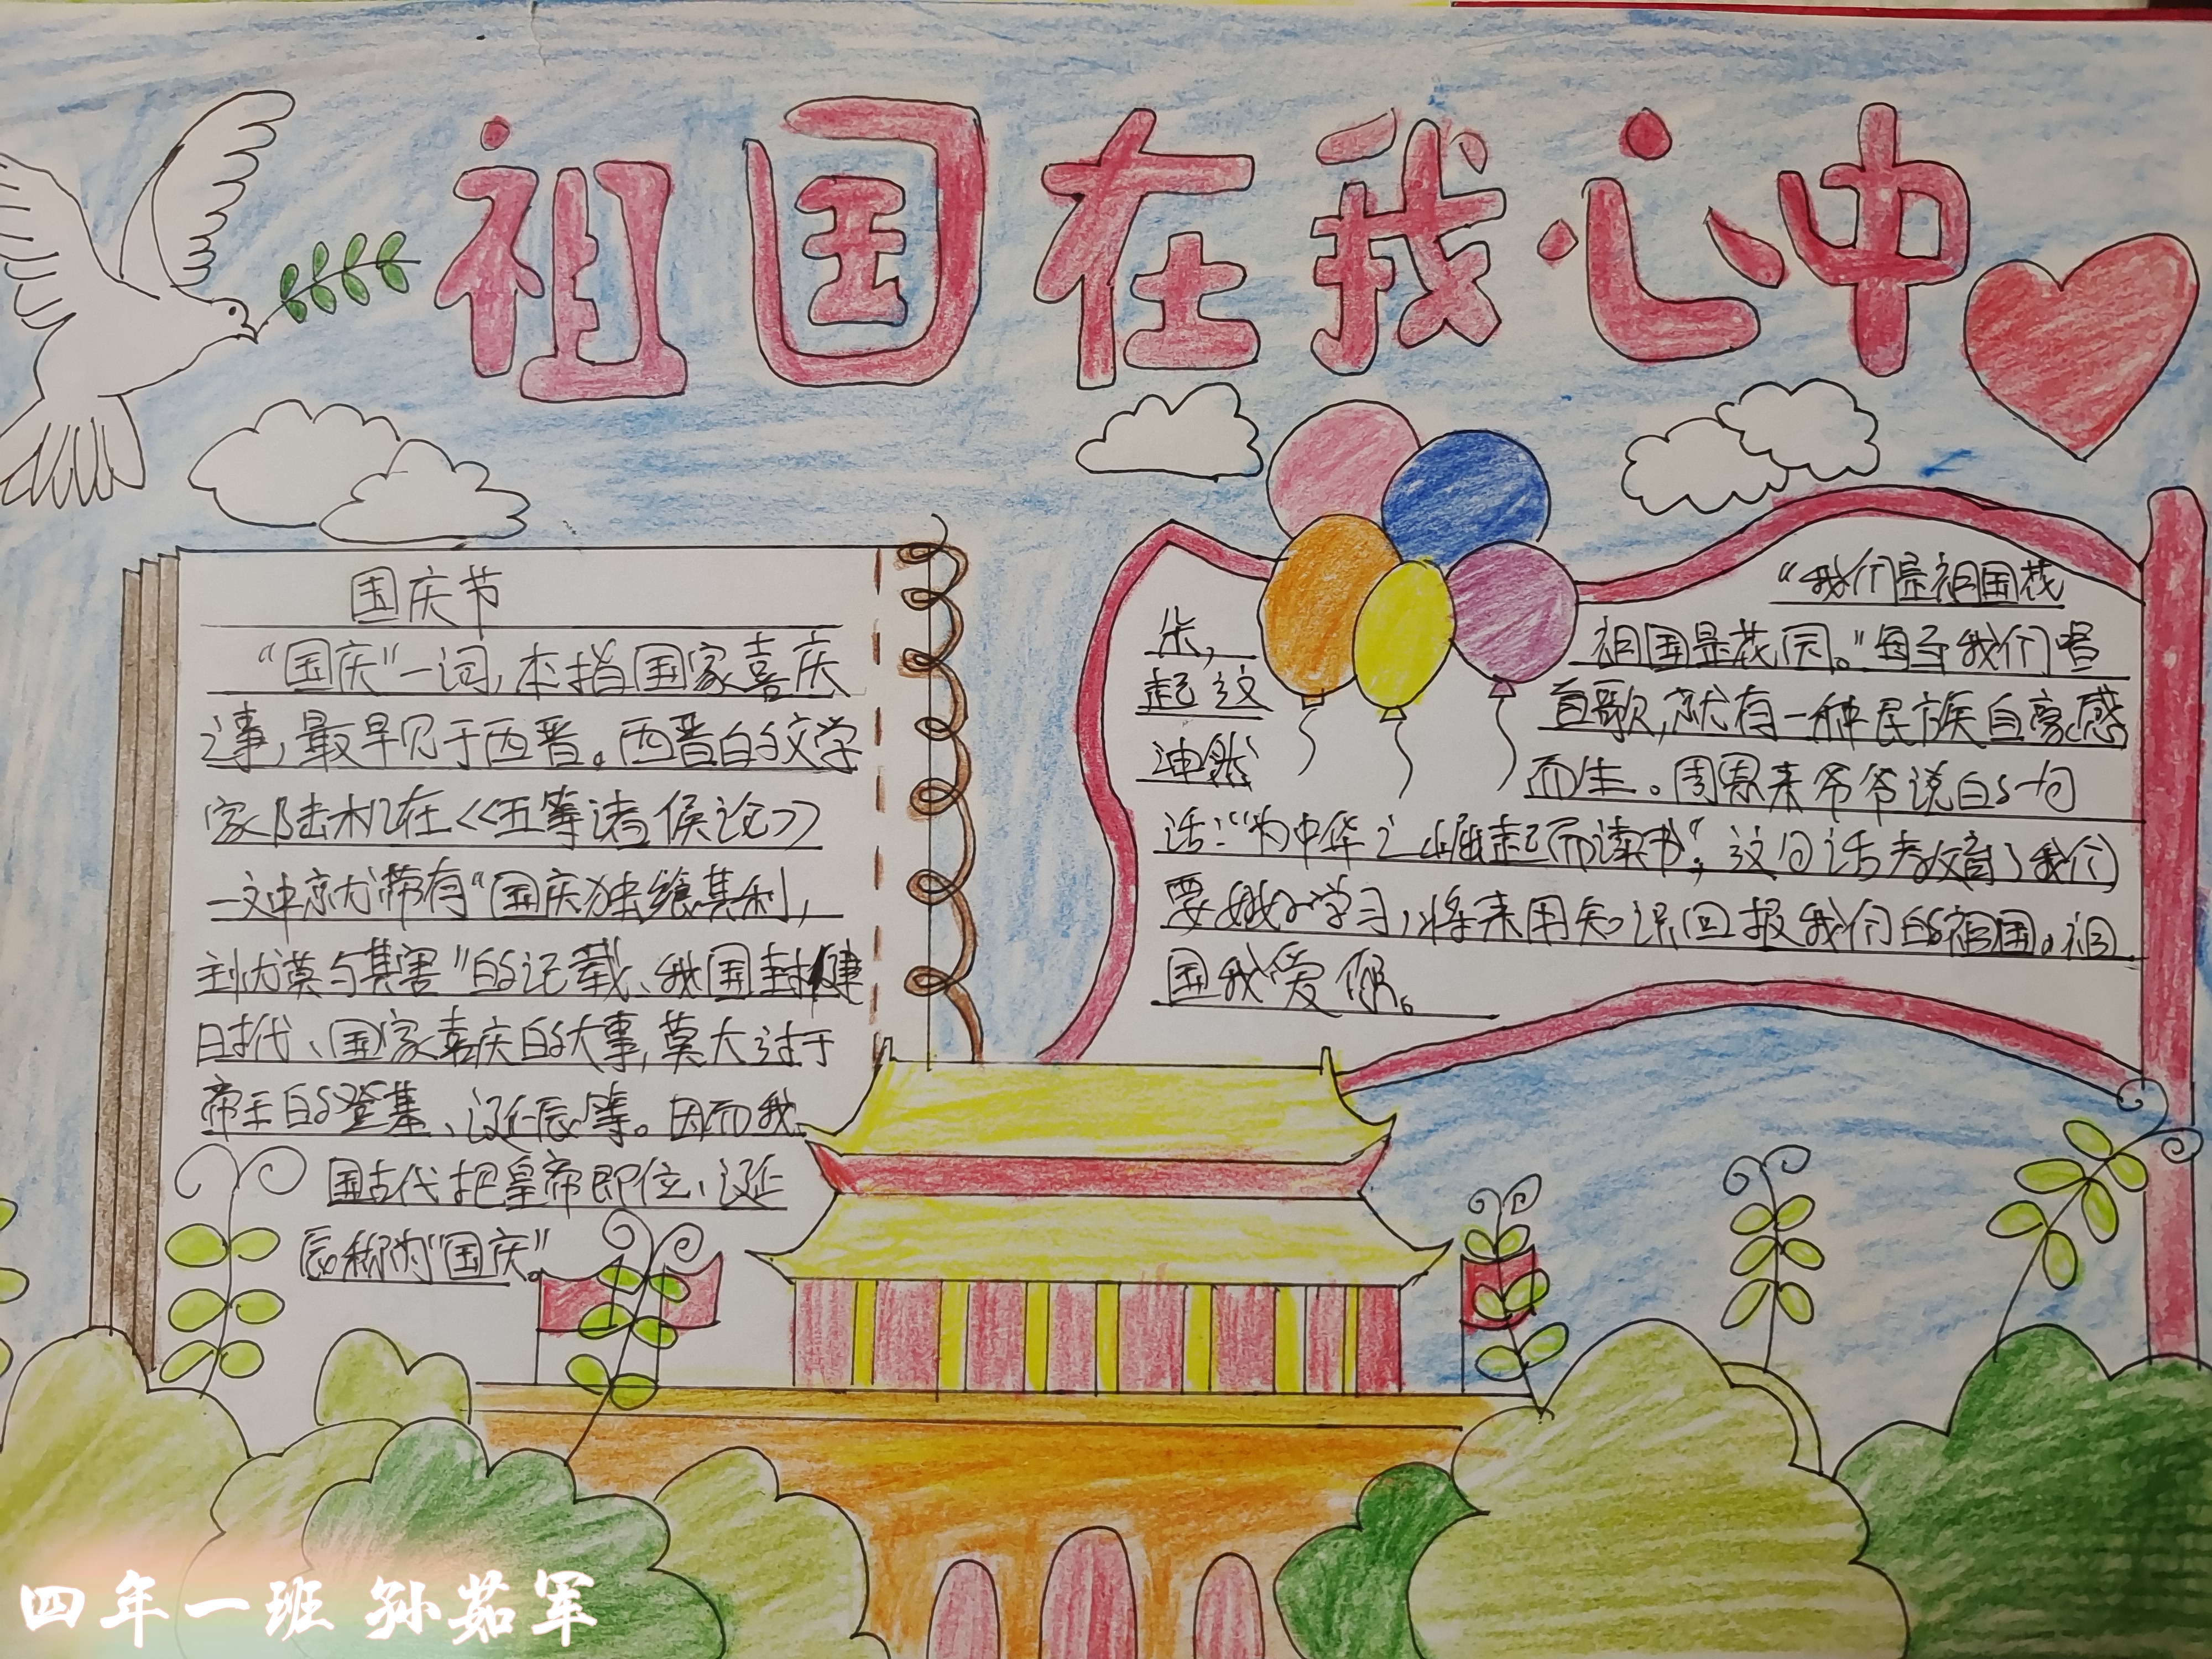 祖国在我心中
国庆节
“国庆”一词,本指国家喜庆
之事,最早见于西晋。西晋的文学
家陆机在《五等诸侯论》
一文中就带有“国庆独飨其利,
主忧莫与其害”的记载、我国封建
时代、国家喜庆的大事,莫大过于
帝王的登基、诞辰等。因而我
国古代把皇帝即位、诞
辰称为“国庆”。
“我们是祖国花
朵, 祖国是花园。”每至我们唱
起这 首歌,就有一种民族自豪感
油然 而生。周恩来爷爷说的一句
话:“为中华之崛起而读书”,这句话教育了我们
要好好学习,将来用知识回报我们的祖国。祖
国我爱你。
四年一班 孙茹军